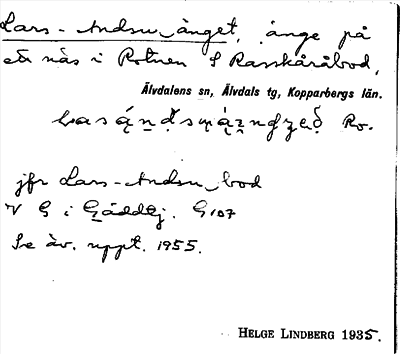 Lars-Andsu änget, änge på
ett näs i Rotnen S Rasskåråbod,
Älvdalens sn, Älvdals tg, Kopparbergs län.
Ro.
jfr Lars-Andsu bod
V G i Gåddej. G107
Se äv. uppt. 1955.
HELGE LINDBERG 1935.